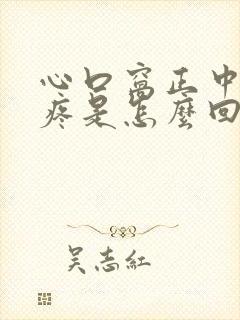 心口窩正中
疼是怎麼回
吴志紅